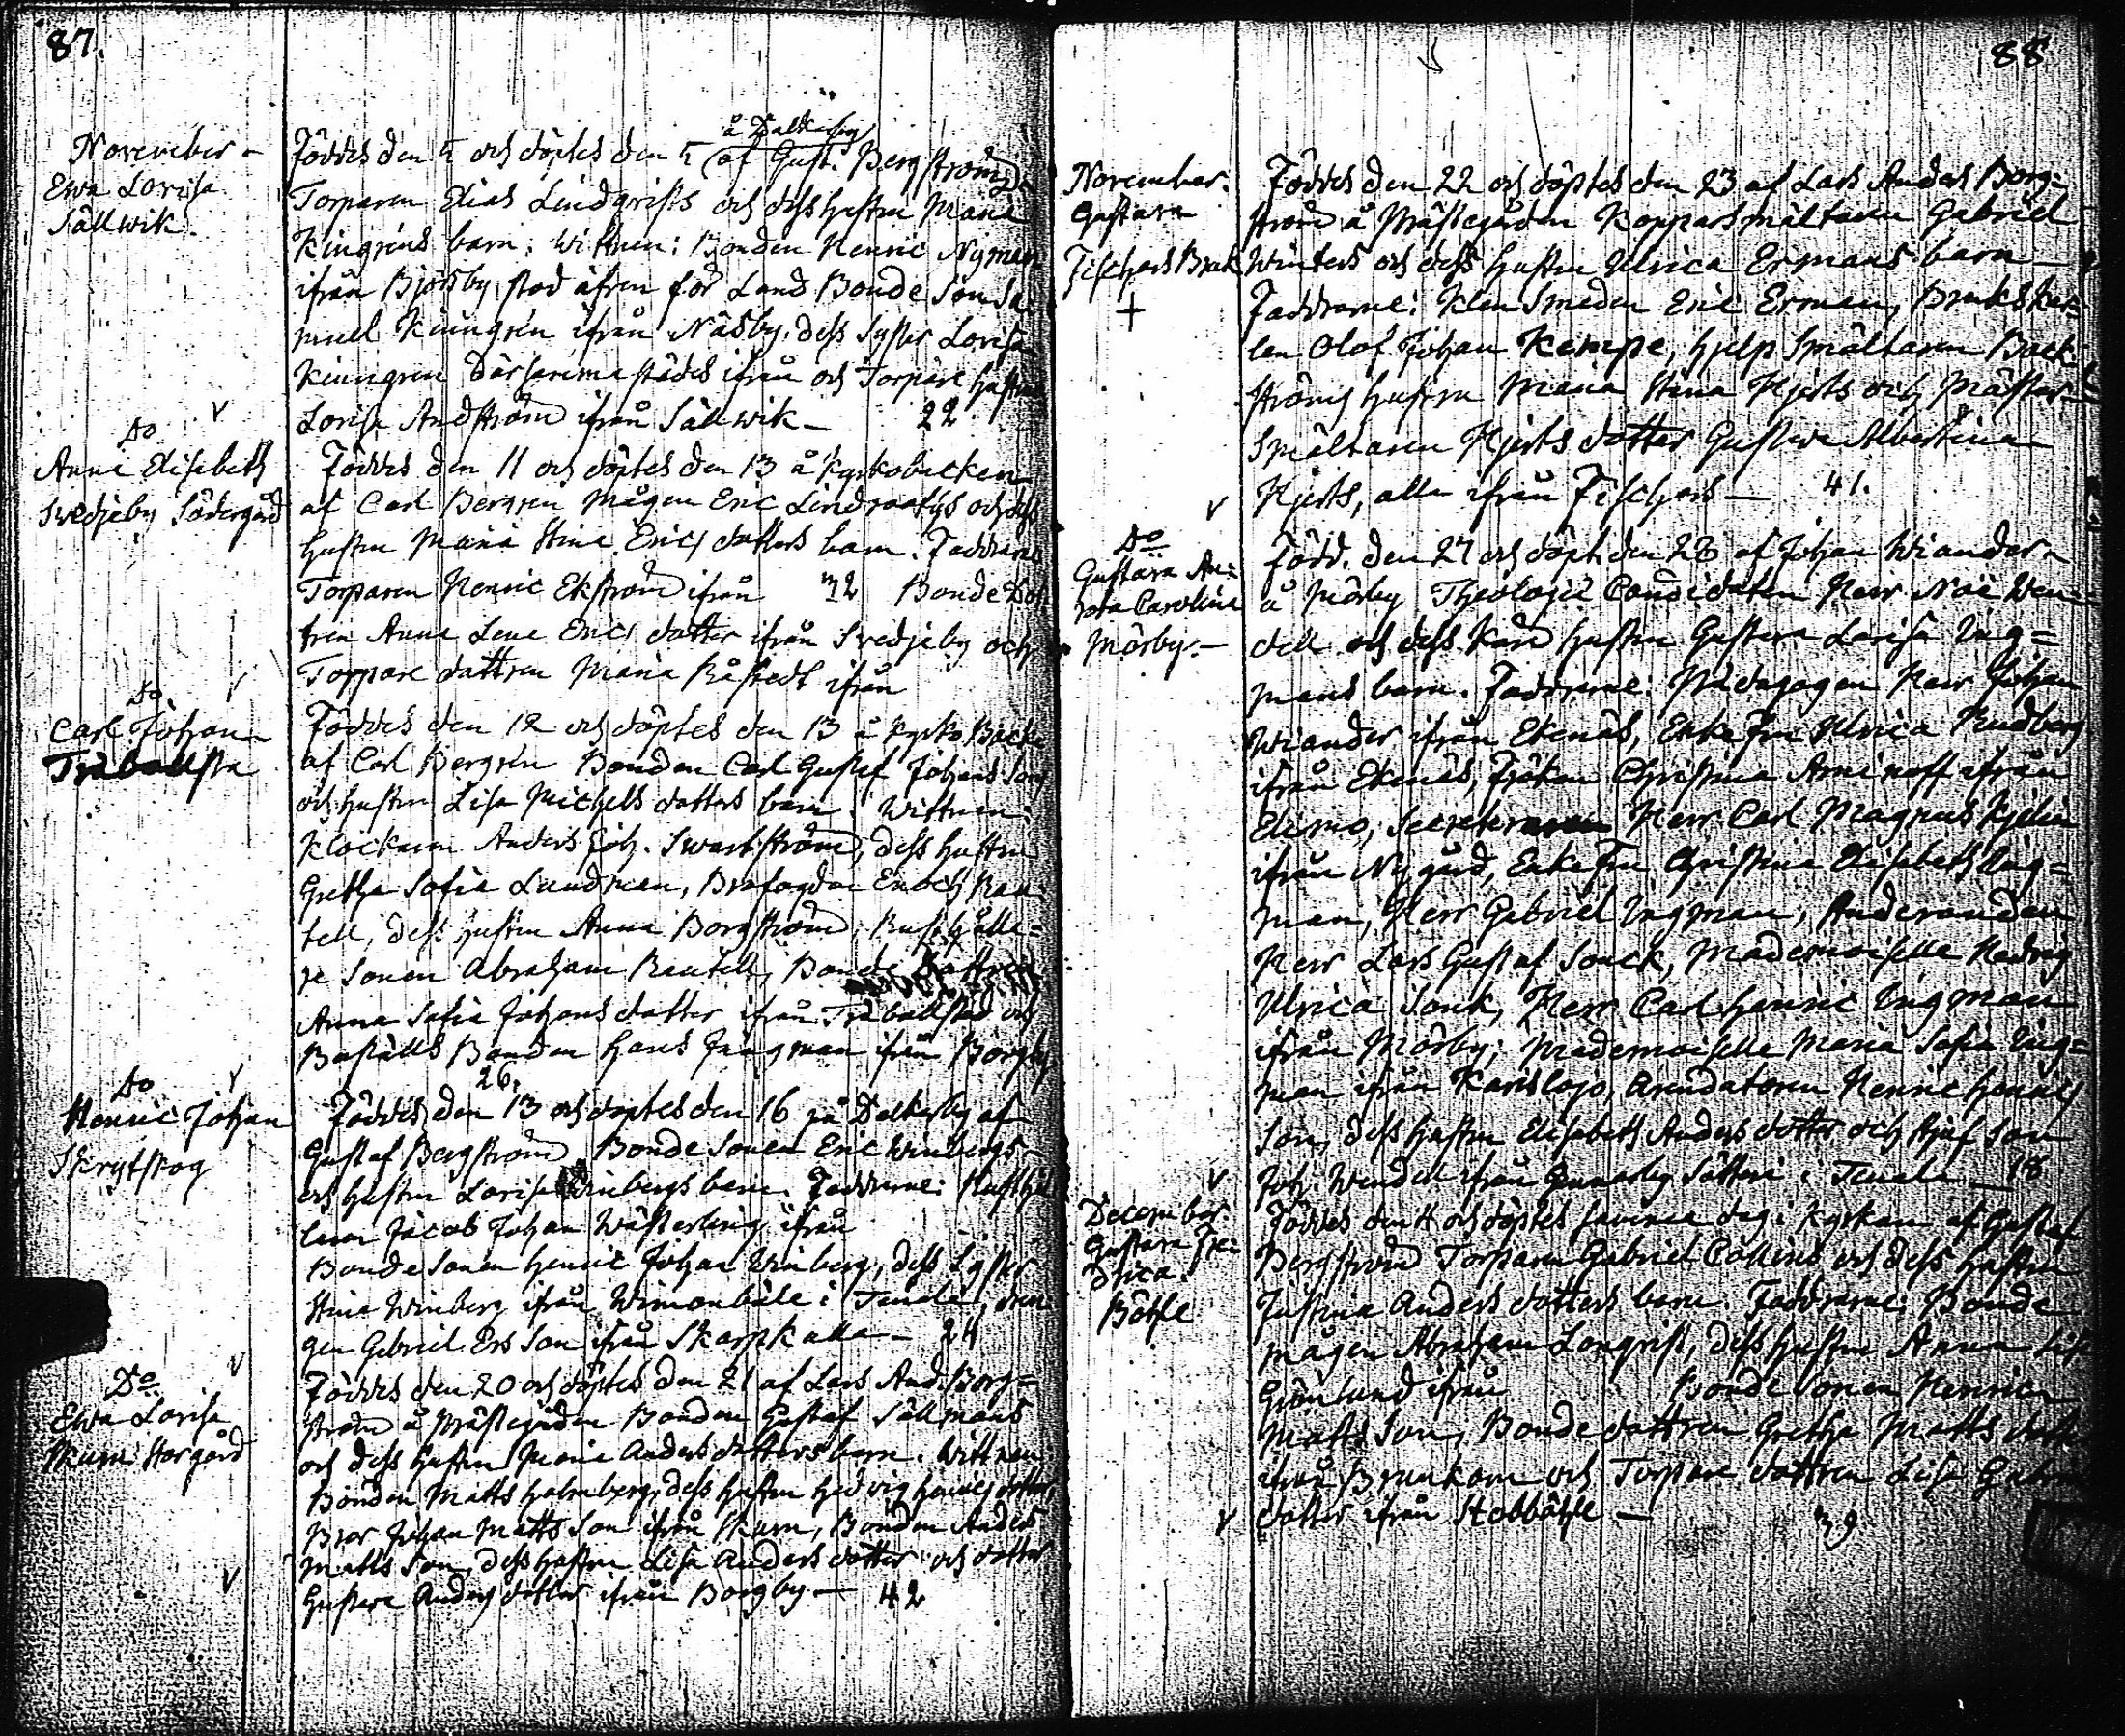 87.
November -
Ewa Lovisa
Sällwik.
å Dalkarby
Föddes den 5 och döptes den 5 af Gust. Bergström
Torparen Elias Lindqvists och dess hustru Maria
Kiugrens barn. Wittnen: Bonden Henric Nyman
ifrån Björsby, stod äfven för Land Bonde Son Sa
muel Kiungren ifrån Näsby, dess Syster Lovisa
Kiungren därsammastädes ifrån och Torpare hustrun
Lovisa Andström ifrån Sällwik - 22
Do
Anna Elisabeth
Svedjeby Södergård
Föddes den 11 och döptes den 13 å Kyrkobacken
af Carl Bergren Mågen Eric och dess
hustru Maria Stina Erics dotters barn. Faddrarne
Torparen Henric Ekström ifrån 32 Bonde Dot
tren Anna Lena Erics dotter ifrån Svedjeby och
Torpare dottren Maria ifrån
Do
Carl Johan
Träbollsta
Föddes den 12 och döptes den 13 å Kyrko Backen
af Carl Bergren Bonden Carl Gustaf Johans Sons
och hustru Lisa Michels dotters barn. Wittnen:
Klockaren Anders Joh. Swartström, dess hustru
Gretha Sofia Lundman, Brofogden Enoch Ran
tell, dess hustru Anna Borgström, Rusthålla=
re Sonen Abraham Rantell, Bonde Dottren
Anna Sofia Johans dotter ifrån Träbollstad och
Boställs Bonden Hans Jungman ifrån Borgby
26.
Do
Henric Johan
Skrytskog
Föddes den 13 och döptes den 16 på Dalkarby af
Gustaf Bergström Bonde Sonen Eric Winbergs
och hustru Lovisa Winbergs barn. Faddrarne: Rusthål
laren Jacob Johan Wästerling ifrån
Bonde Sonen Henric Johan Winberg, dess Syster
Stina Winberg ifrån Wimonböle i Tenala, dren
gen Gabriel Ers Son ifrån Skarpkulla - 24
Do
Ewa Lovisa
Skuru Storgård
Föddes den 20 och döptes den 21 af Lars And. Borg=
ström å Prästegården Bonden Gustaf Sällmans
och dess hustru Maria Anders dotters barn. Wittnen
Bonden Matts Holmberg, dess hustru Hedvig Henrics dotter,
Bror Johan Matts Son ifrån Skuru, Bonden Anders
Matts Son, dess hustru Lisa Anders dotter och dotter
Gustava Anders dotter ifrån Borgby - 42
88
November.
Gustava
Fischars Bruk
+
Föddes den 22 och döptes den 23 af Lars Anders Borg=
ström å Prästegården Kopparsmältaren Gabriel
Winters och dess hustru Ulrica Ermans barn -
Faddrarne: Klen Smeden Eric Erman, Brukskar=
len Olof Johan Kempe, hjelp Smältaren Back
ströms hustru Maria Stina Hjerts och Mäster
Smältaren Hjerts dotter Gustava Albertina
Hjerts, alla ifrån Fischars - 41.
Do
Gustava An=
nota Carolina
Mörby. -
Född. den 27 och döpt. den 28 af Johan Wiander
å Mörby Theologie Candidaten Herr Noë Wen=
dell och dess Kära hustru Gustava Lovisa Ing=
mans barn. Faddrarne: Pädagogen Herr Johan
Wiander ifrån Ekenäs, Enke Fru Ulrica Rudberg
ifrån Ekenäs, Fröken Christina Aminoff ifrån
Elimo, Secreteraren Herr Carl Magnus Kjelin
ifrån Nygård, Enke Fru Christina Elisabeth Ing=
man, Herr Gabriel Ingman, Studeranden
Herr Lars Gustaf Jonck, Mademoiselle Hedvig
Ulrica Jonk, Herr Carl Henric Ingman
ifrån Mörby; Mademoiselle Maria Sofia Ing=
man ifrån Karislojo, Arendatoren Henric Henrics
Son, dess hustru Elisabeth Anders dotter och Stjuf Son
Joh. Wendell ifrån Gunnarby Sätteri i Tenala - 18
December.
Gustava Fre=
drica.
Bötle
Föddes den 4 och döptes samma dag i Kyrkan af Gustaf
Bergström Torparen Gabriel Collins och dess hustru
Justina Anders dotters barn. Faddrarne: Bonde
mågen Abraham Lonqvist, dess hustru Anna Lisa
Grönlund ifrån Bonde Sonen Henric
Matts Son, Bonde dottren Gretha Matts dotter
ifrån Brunkom och Torpare dottren Lisa Gabriels
dotter ifrån Stobbötle - 39